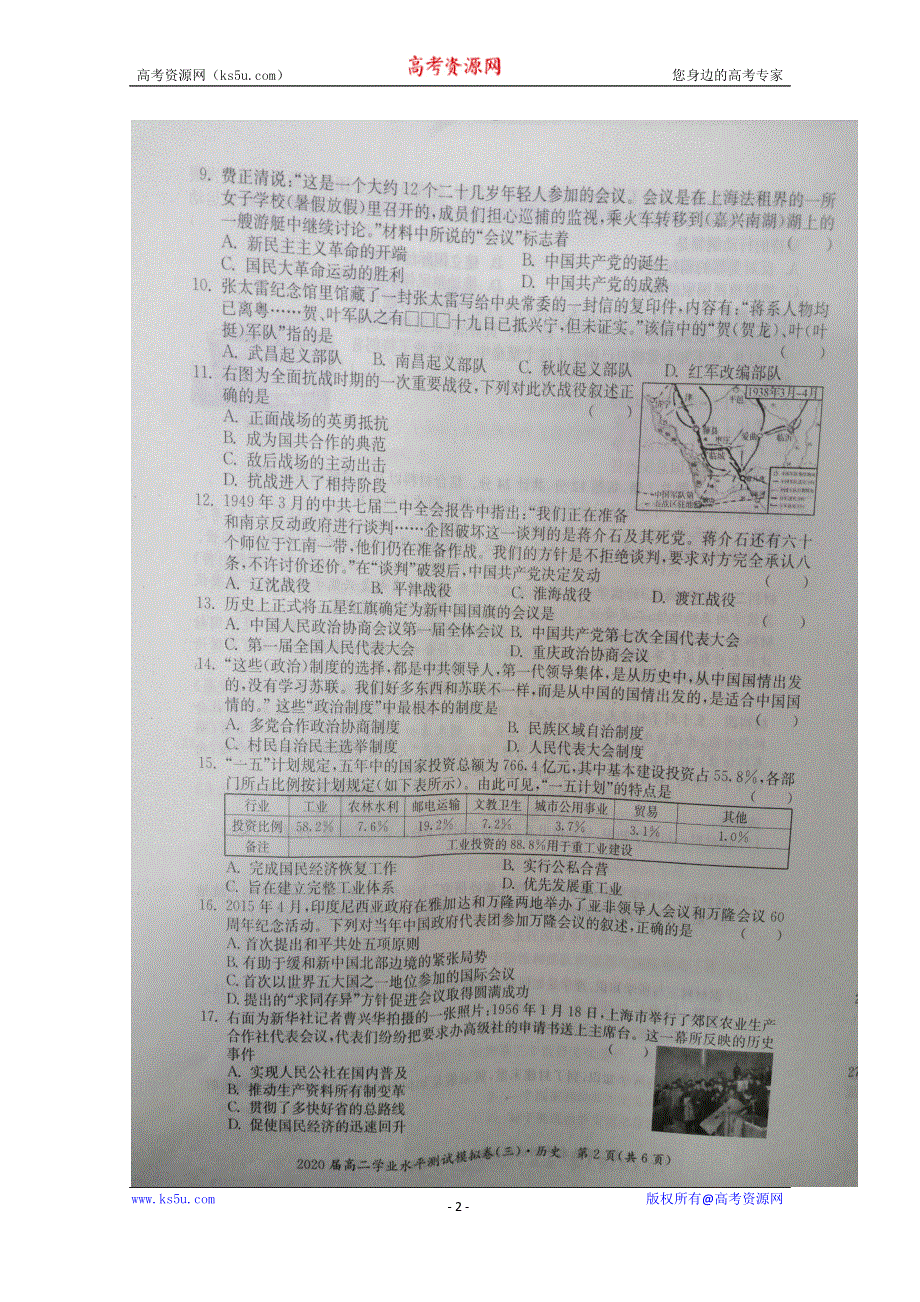 高考资源网（ks5u.com）
高考资源网
您身边的高考专家
9. 费正清说：“这是一个大约12个二十几岁年轻人参加的会议。会议是在上海法租界的一所
女子学校(暑假放假)里召开的，成员们担心巡捕的监视，乘火车转移到(嘉兴南湖)湖上的
一艘游艇中继续讨论。”材料中所说的“会议”标志着 ( )
A. 新民主主义革命的开端 B. 中国共产党的诞生
C. 国民大革命运动的胜利 D. 中国共产党的成熟
10. 张太雷纪念馆里馆藏了一封张太雷写给中央常委的一封信的复印件，内容有：“蒋系人物均
已离粤……贺、叶军队之有□□□十九日已抵兴宁，但未证实。”该信中的“贺(贺龙)、叶(叶
挺)军队”指的是 ( )
A. 武昌起义部队 B. 南昌起义部队 C. 秋收起义部队 D. 红军改编部队
11. 右图为全面抗战时期的一次重要战役，下列对此次战役叙述正
确的是 ( )
A. 正面战场的英勇抵抗
B. 成为国共合作的典范
C. 敌后战场的主动出击
D. 抗战进入了相持阶段
1938年3月-4月
滕县
枣庄
临城
临沂
中国军队第
五战区驻地
12. 1949年3月的中共七届二中全会报告中指出：“我们正在准备
和南京反动政府进行谈判……企图破坏这一谈判的是蒋介石及其死党。蒋介石还有六十
个师位于江南一带，他们仍在准备作战。我们的方针是不拒绝谈判，要求对方完全承认八
条，不许讨价还价。”在“谈判”破裂后，中国共产党决定发动 ( )
A. 辽沈战役 B. 平津战役 C. 淮海战役 D. 渡江战役
13. 历史上正式将五星红旗确定为新中国国旗的会议是 ( )
A. 中国人民政治协商会议第一届全体会议 B. 中国共产党第七次全国代表大会
C. 第一届全国人民代表大会 D. 重庆政治协商会议
14. “这些(政治)制度的选择，都是中共领导人，第一代领导集体，是从历史中，从中国国情出发
的，没有学习苏联。我们好多东西和苏联不一样，而是从中国的国情出发的，是适合中国国
情的。”这些“政治制度”中最根本的制度是 ( )
A. 多党合作政治协商制度 B. 民族区域自治制度
C. 村民自治民主选举制度 D. 人民代表大会制度
15. “一五”计划规定，五年中的国家投资总额为766.4亿元，其中基本建设投资占55.8%，各部
门所占比例按计划规定(如下表所示)。由此可见，“一五计划”的特点是 ( )
行业 工业 农林水利 邮电运输 文教卫生 城市公用事业 贸易 其他
投资比例 58.2% 7.6% 19.2% 7.2% 3.7% 3.1% 1.0%
备注 工业投资的88.8%用于重工业建设
A. 完成国民经济恢复工作 B. 实行公私合营
C. 旨在建立完整工业体系 D. 优先发展重工业
16. 2015年4月，印度尼西亚政府在雅加达和万隆两地举办了亚非领导人会议和万隆会议60
周年纪念活动。下列对当年中国政府代表团参加万隆会议的叙述，正确的是 ( )
A.首次提出和平共处五项原则
B.有助于缓和新中国北部边境的紧张局势
C.首次以世界五大国之一地位参加的国际会议
D.提出的“求同存异”方针促进会议取得圆满成功
17. 右面为新华社记者曹兴华拍摄的一张照片：1956年1月18日，上海市举行了郊区农业生产
合作社代表会议，代表们纷纷把要求办高级社的申请书送上主席台。这一幕所反映的历史
事件 ( )
A. 实现人民公社在国内普及
B. 推动生产资料所有制变革
C. 贯彻了多快好省的总路线
D. 促使国民经济的迅速回升
2020届高二学业水平测试模拟卷(三)·历史 第2页(共6页)
www.ks5u.com
- 2 -
版权所有@高考资源网